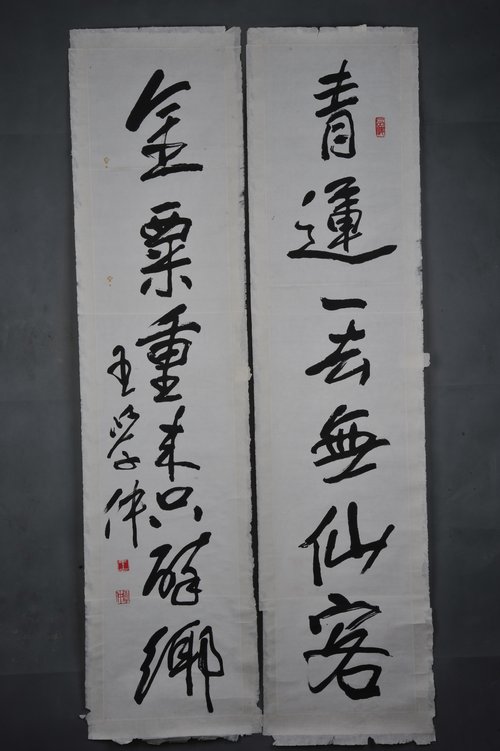 青蓮一去無仙客
金粟重来只醉鄉
王學仲